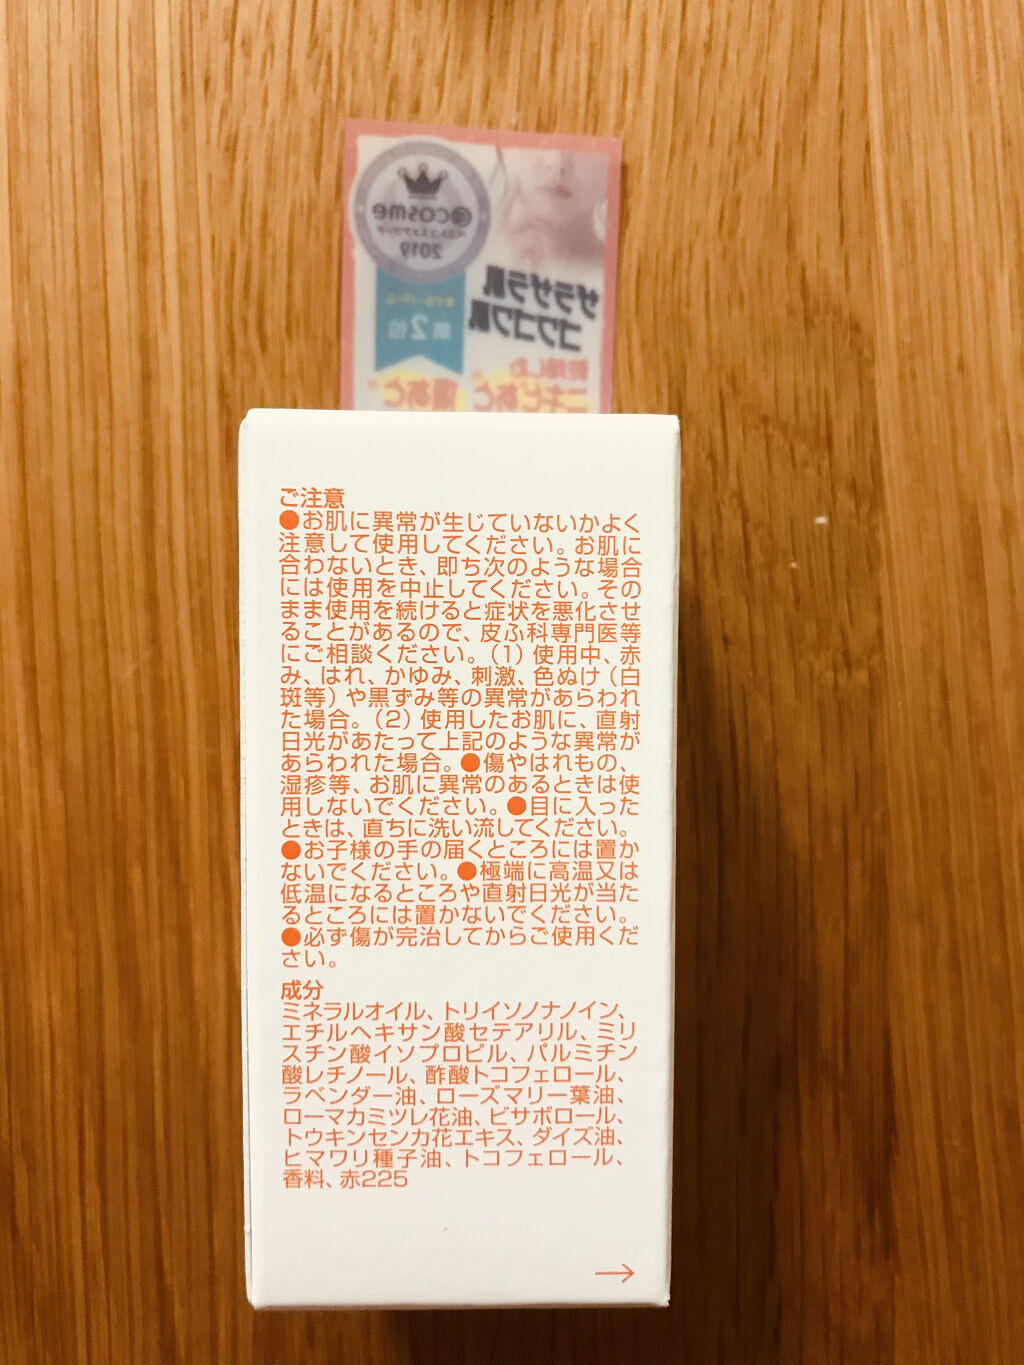 @cosme
ベストコスメアワード
2019
第2位
ザラザラ肌
ゴワゴワ肌
乾燥した
ニキビあと
傷あと
ご注意
●お肌に異常が生じていないかよく
注意して使用してください。お肌に
合わないとき、即ち次のような場合
には使用を中止してください。その
まま使用を続けると症状を悪化させ
ることがあるので、皮ふ科専門医等
にご相談ください。(1)使用中、赤
み、はれ、かゆみ、刺激、色ぬけ(白
斑等)や黒ずみ等の異常があらわれ
た場合。(2)使用したお肌に、直射
日光があたって上記のような異常が
あらわれた場合。●傷やはれもの、
湿疹等、お肌に異常のあるときは使
用しないでください。●目に入った
ときは、直ちに洗い流してください。
●お子様の手の届くところには置か
ないでください。●極端に高温又は
低温になるところや直射日光が当た
るところには置かないでください。
●必ず傷が完治してからご使用くだ
さい。
成分
ミネラルオイル、トリイソノナノイン、
エチルヘキサン酸セテアリル、ミリ
スチン酸イソプロピル、パルミチン
酸レチノール、酢酸トコフェロール、
ラベンダー油、ローズマリー葉油、
ローマカミツレ花油、ビサボロール、
トウキンセンカ花エキス、ダイズ油、
ヒマワリ種子油、トコフェロール、
香料、赤225
→